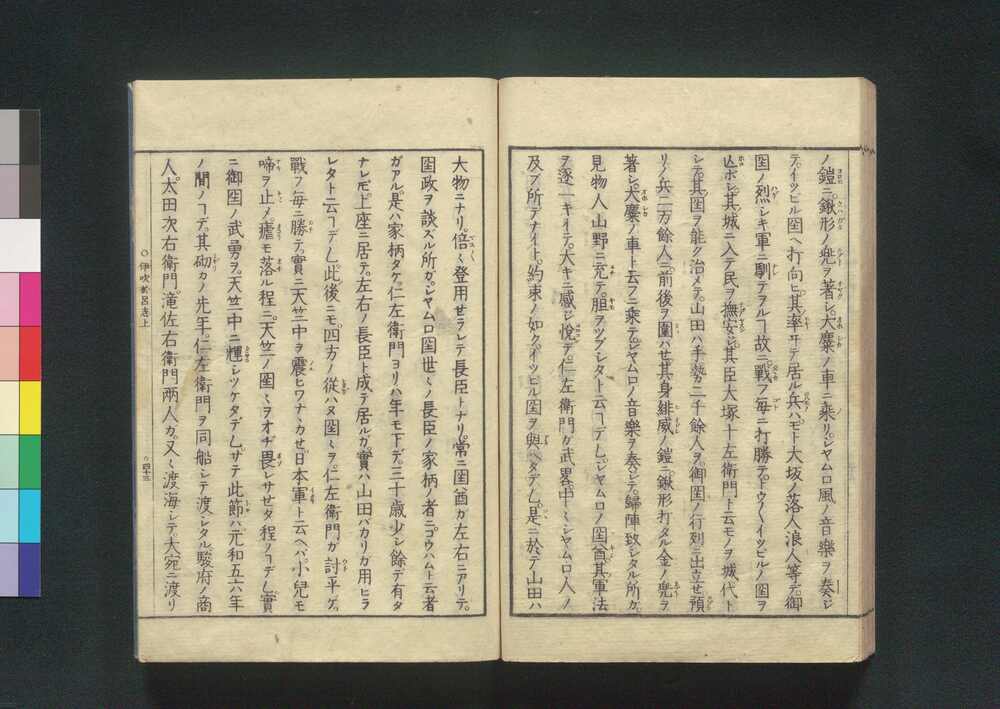 ノ鎧ニ鍬形ノ兜ヲ著シ大麋ノ車ニ乘リシヤムロ風ノ音樂ヲ奏シ
テイツビル囶ヘ打向ヒ其率ヰテ居ル兵ハモト大坂ノ落人浪人等テ御
囶ノ烈シキ軍ニ馴テヲルヿ故ニ戰フ毎ニ打勝テトウ〱イツビルノ囶ヲ
亾ホシ其城ニ入テ民ヲ撫安シ其臣大塚十左衛門ト云モノヲ城代ト
シテ其囶ヲ能ク治メテ山田ハ手勢二千餘人ヲ御囶ノ行列ニ出立セ預
リノ兵二万餘人ニ前後ヲ圍ハセ其身緋威ノ鎧ニ鍬形打タル金ノ兜ヲ
著シ大麋ノ車ト云フニ乘テシヤムロノ音樂ヲ奏シテ歸陣致シタル所カ
見物人山野ニ充テ胆ヲツブシタト云ヿデムシシヤムロノ囶酋其軍法
ヲ逐一キイテ大キニ感シ悅デ仁左衛門カ武畧中〱シヤムロ人ノ
及フ所デナイト約束ノ如クイツビル囶ヲ與ヘタデム是ニ於テ山田ハ
大物ニナリ倍〻登用セラレテ長臣トナリ常ニ囶酋カ左右ニアリテ
囶政ヲ談スル所カシヤムロ囶世〻ノ長臣ノ家柄ノ者ニコウハムト云者
ガアル是ハ家柄タケ仁左衛門ヨリハ年モ下デ三十歳少シ餘デ有タ
ナレ𪜈上座ニ居テ左右ノ長臣ト成テ居ルガ實ハ山田バカリガ用ヒラ
レタト云ヿデム此後ニモ四方ノ從ハヌ囶〻ヲ仁左衛門ガ討平ケ
戰フ毎ニ勝テ實ニ天竺中ヲ震ヒワナヽカセ日本軍ト云ヘバ小兒モ
啼ヲ止メ瘧モ落ル程ニ天竺ノ囶〻ヲオヂ畏レサセタ程ノヿデム實
ニ御囶ノ武勇ヲ天竺中ニ輝シツケタデムサテ此節ハ元和五六年
ノ間ノヿデ其砌カノ先年仁左衛門ヲ同船シテ渡シタル駿府ノ商
人太田次右衛門滝佐右衛門兩人カ又〻渡海シテ大宛ニ渡リ
○伊吹於呂志上
○四十三